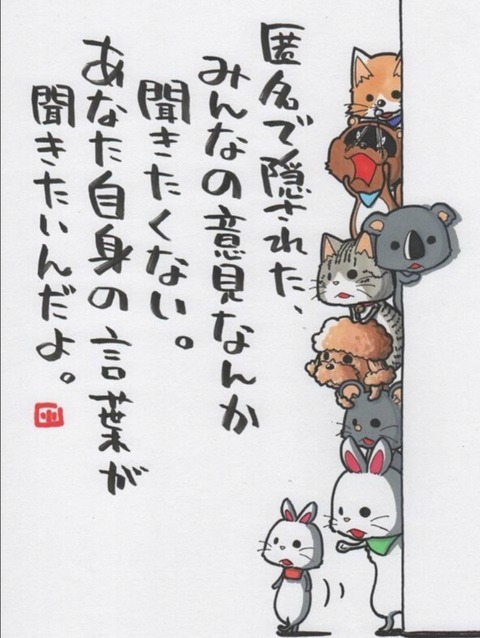 匿名で隠された、
みんなの意見なんか
聞きたくない。
あなた自身の言葉が
聞きたいんだよ。